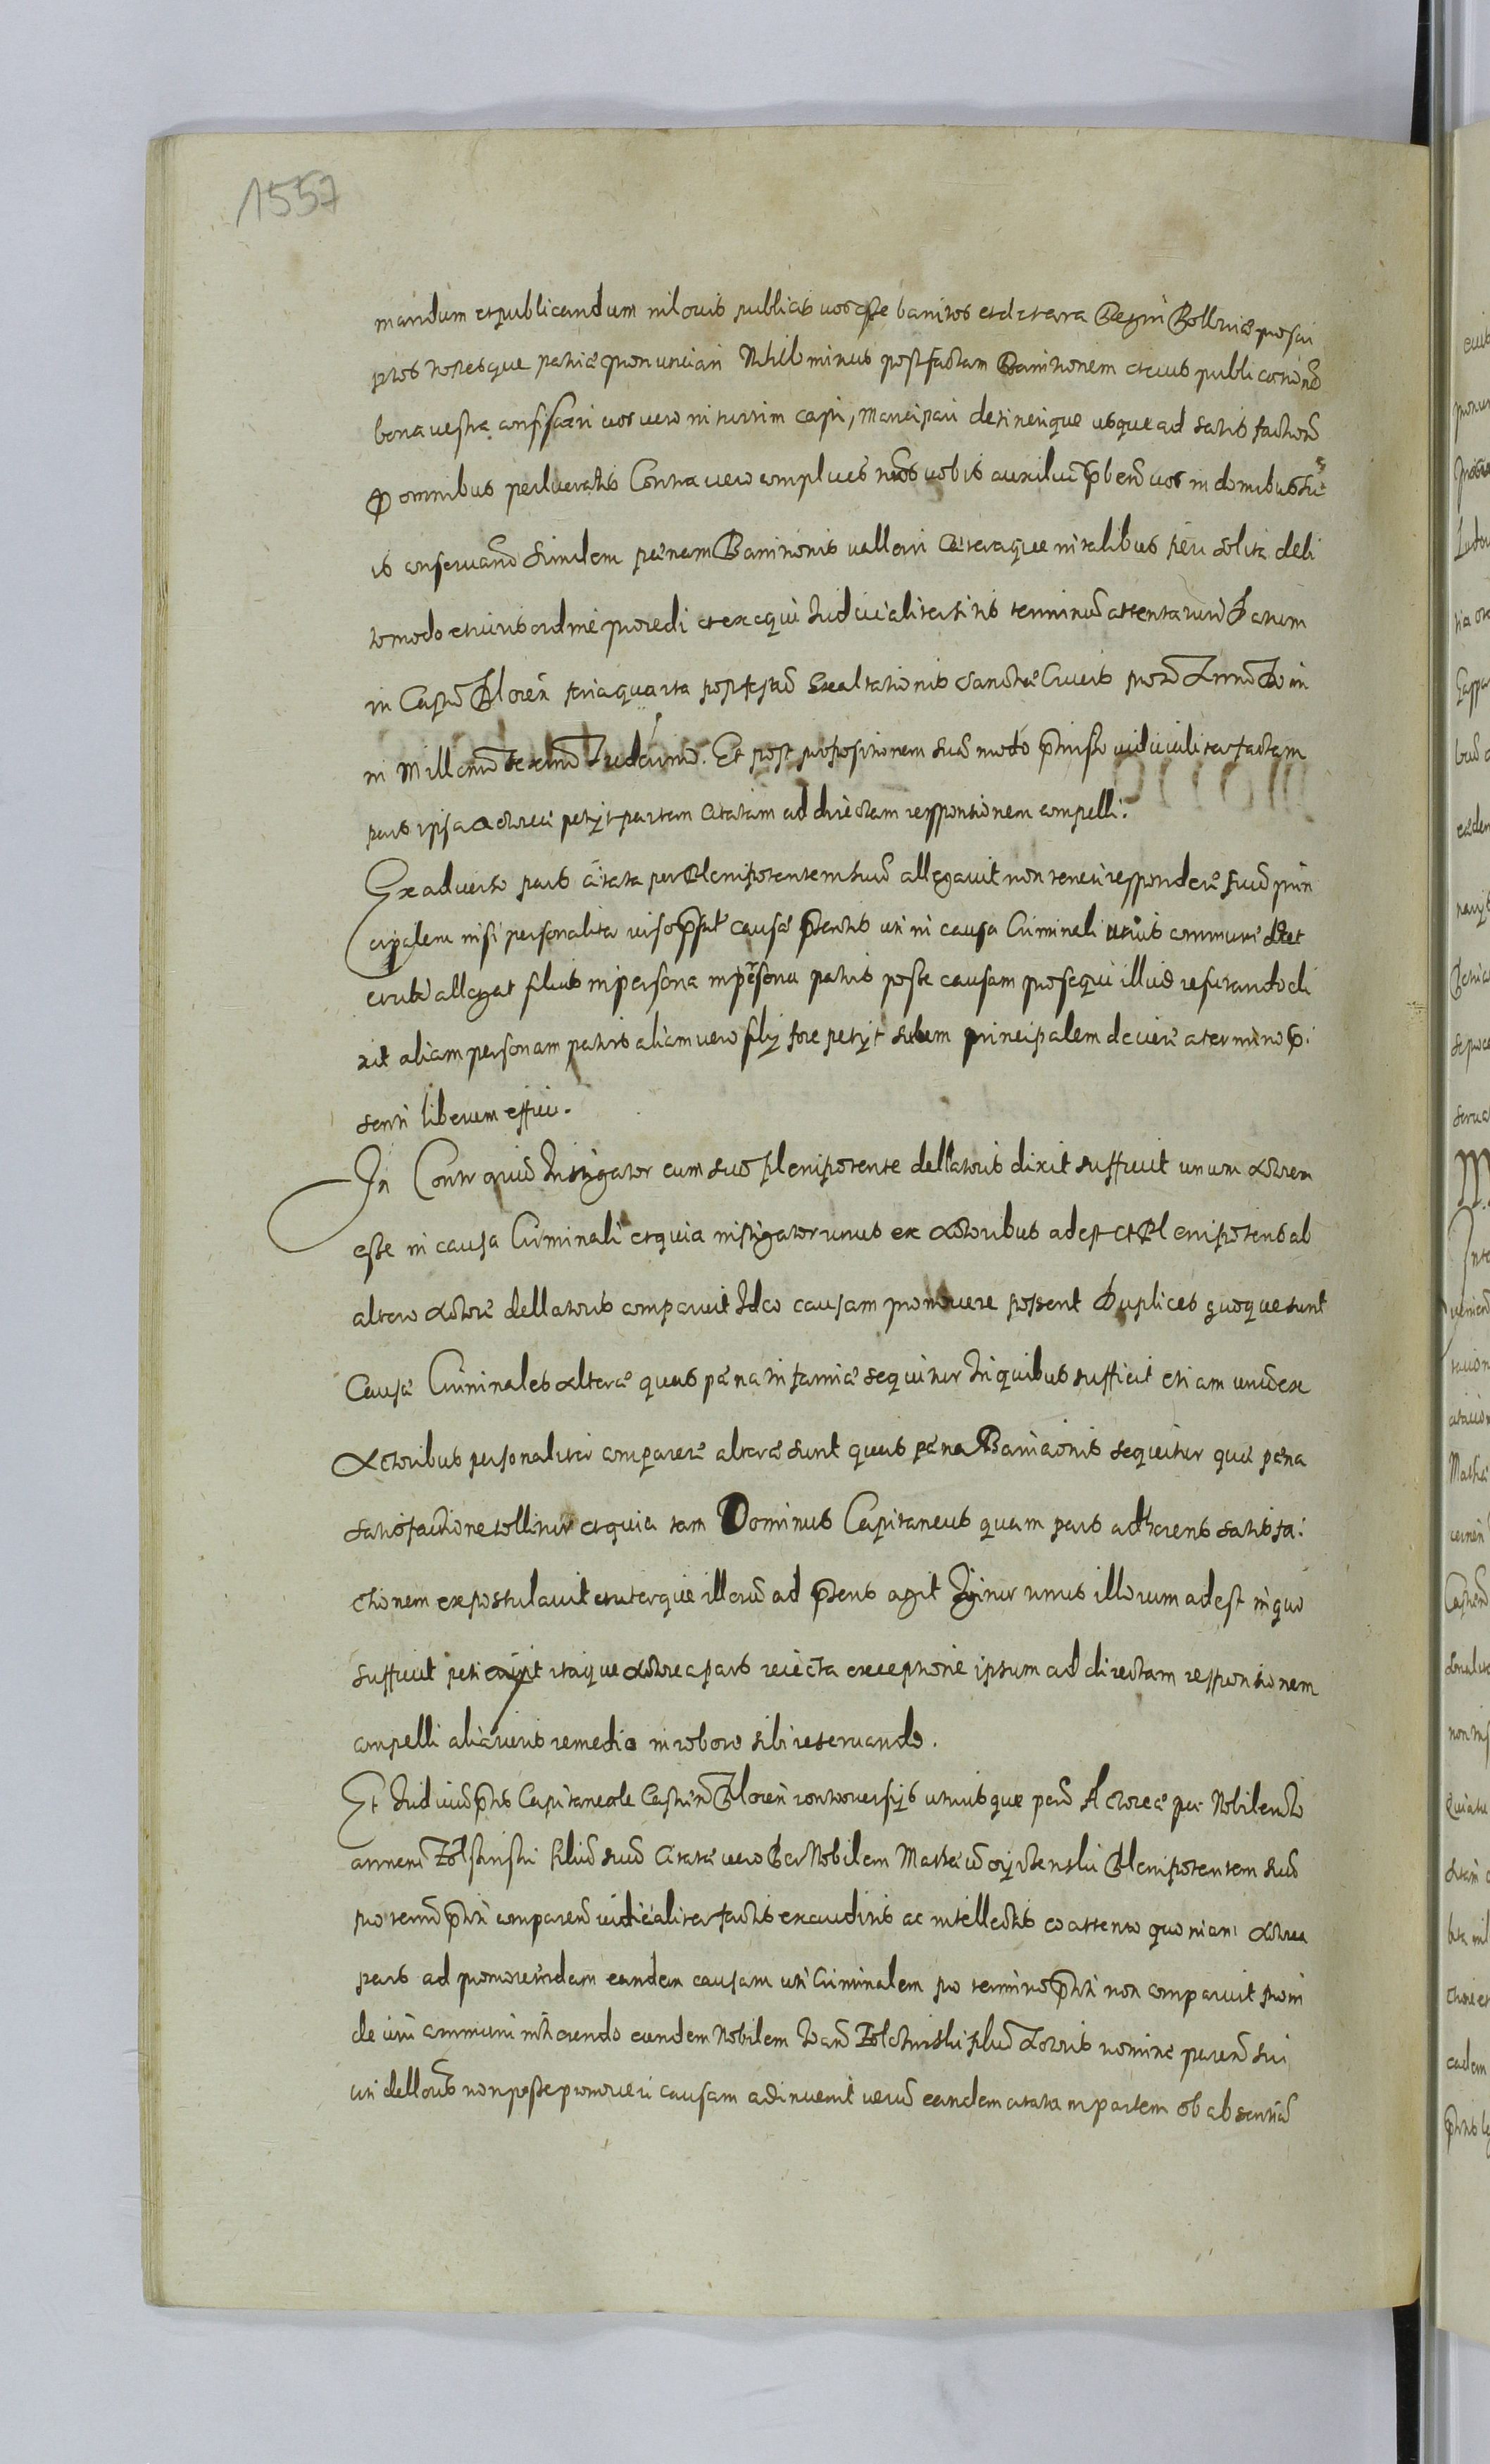 1557
mandum et publicandum in locis publicis vos esse banitos et de terra Regni Polloniæ proscri
ptos hostesque patriæ pronunciari Nihilominus post factam Banitionem et eius publicationē
bona vestra confiscari vos vero in turrim capi, mancipari detinerique usque ad satisfactionē
p omnibus perlucratis Contra vero complices vobis auxiliū pbenđ vos in domibus su
is conservanđ similem pænam Banitionis vallari Cæteraque in talibus fieri solita debi
to modo et iuris ordine procedi et exequi Judicialiter sitis terminū attentaturi Datum
in Castro Plocen feria quarta post festū Exaltationis Sanctæ Crucis Anno Dom
ini Millesimo Et post propositionem suā modo pmisso iudicialiter factam
pars ipsa Actorea petijt partem Citatam ad directam responsionem compelli.
Ex adverso pars citata per Plenipotentem suū allegavit non teneri respondere suū prin
cipalem nisi personaliter causæ uti in causa Criminali iuris communi
allegat filius in persona in persona patris posse causam prosequi illud refutando di
xit aliam personam patris aliam vero filij fore petijt suum principalem decære a termino p
senti liberum effici.
In Contr quiū Instigator cum suo plenipotente dellatoris dixit sufficit unum Actorem
esse in causa Criminali et quia instigator unus ex Actoribus adest et Plenipotens ab
altero Actore dellatoris comparuit Ideo causam promovere possent Duplices quoque sunt
Causæ Criminales alteræ quas pæna infamiæ sequitur In quibus sufficit etiam unū ex
Actoribus personaliter comparere alteræ sunt quas pæna Banicionis sequitur quæ pæna
satisfactione tollitur et quia tam Dominus Capitaneus quam pars adhærens satisfa
ctionem expostulavit et uterque illorū ad psens agit Igitur unus illorum adest in quo
sufficit itaque Actorea pars reiecta exceptione ipsum ad directam responsionem
compelli alia iuris remedia in robore sibi reservando.
Et Judiciū pns Capitaneale Castrense Plocen controversijs utriusque parī Actoreæ per Nobilem Jo
annem Zolchinski filiū suū Citatæ vero Per Nobilem Plenipotentem suū
pro termō pnti comparenđ iudicialiter factis exauditis ac intellectis eo attento quoniam Actorea
pars ad promovendam eandem causam uti Criminalem pro termino pnti non comparuit proin
de iuri communi inhærendo eundem Nobilem Joanē Zolchinski filiū Actoris nomine parentis sui
uti dellōris non posse promoveri causam adinvenit verū eandem citatam partem ob absentiā